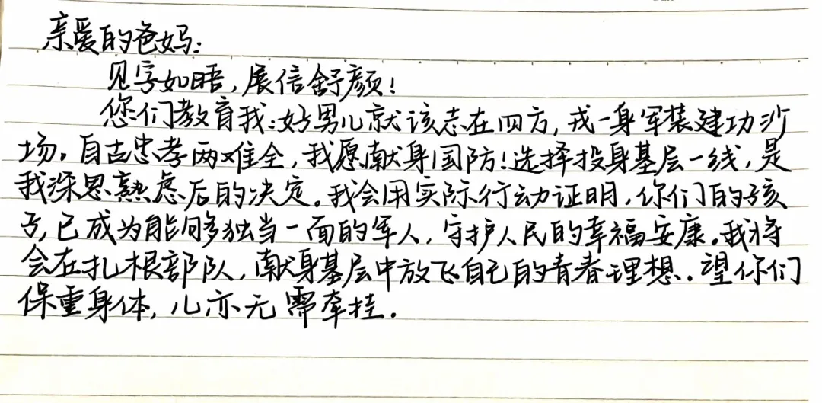 亲爱的爸妈：
见字如晤，展信舒颜！
您们教育我：好男儿就该志在四方，戎一身军装建功沙
场。自古忠孝两难全，我愿献身国防！选择投身基层一线，是
我深思熟虑后的决定。我会用实际行动证明，你们的孩
子，已成为能够独当一面的军人，守护人民的幸福安康。我将
会在扎根部队，献身基层中放飞自己的青春理想。望你们
保重身体，儿亦无需牵挂。